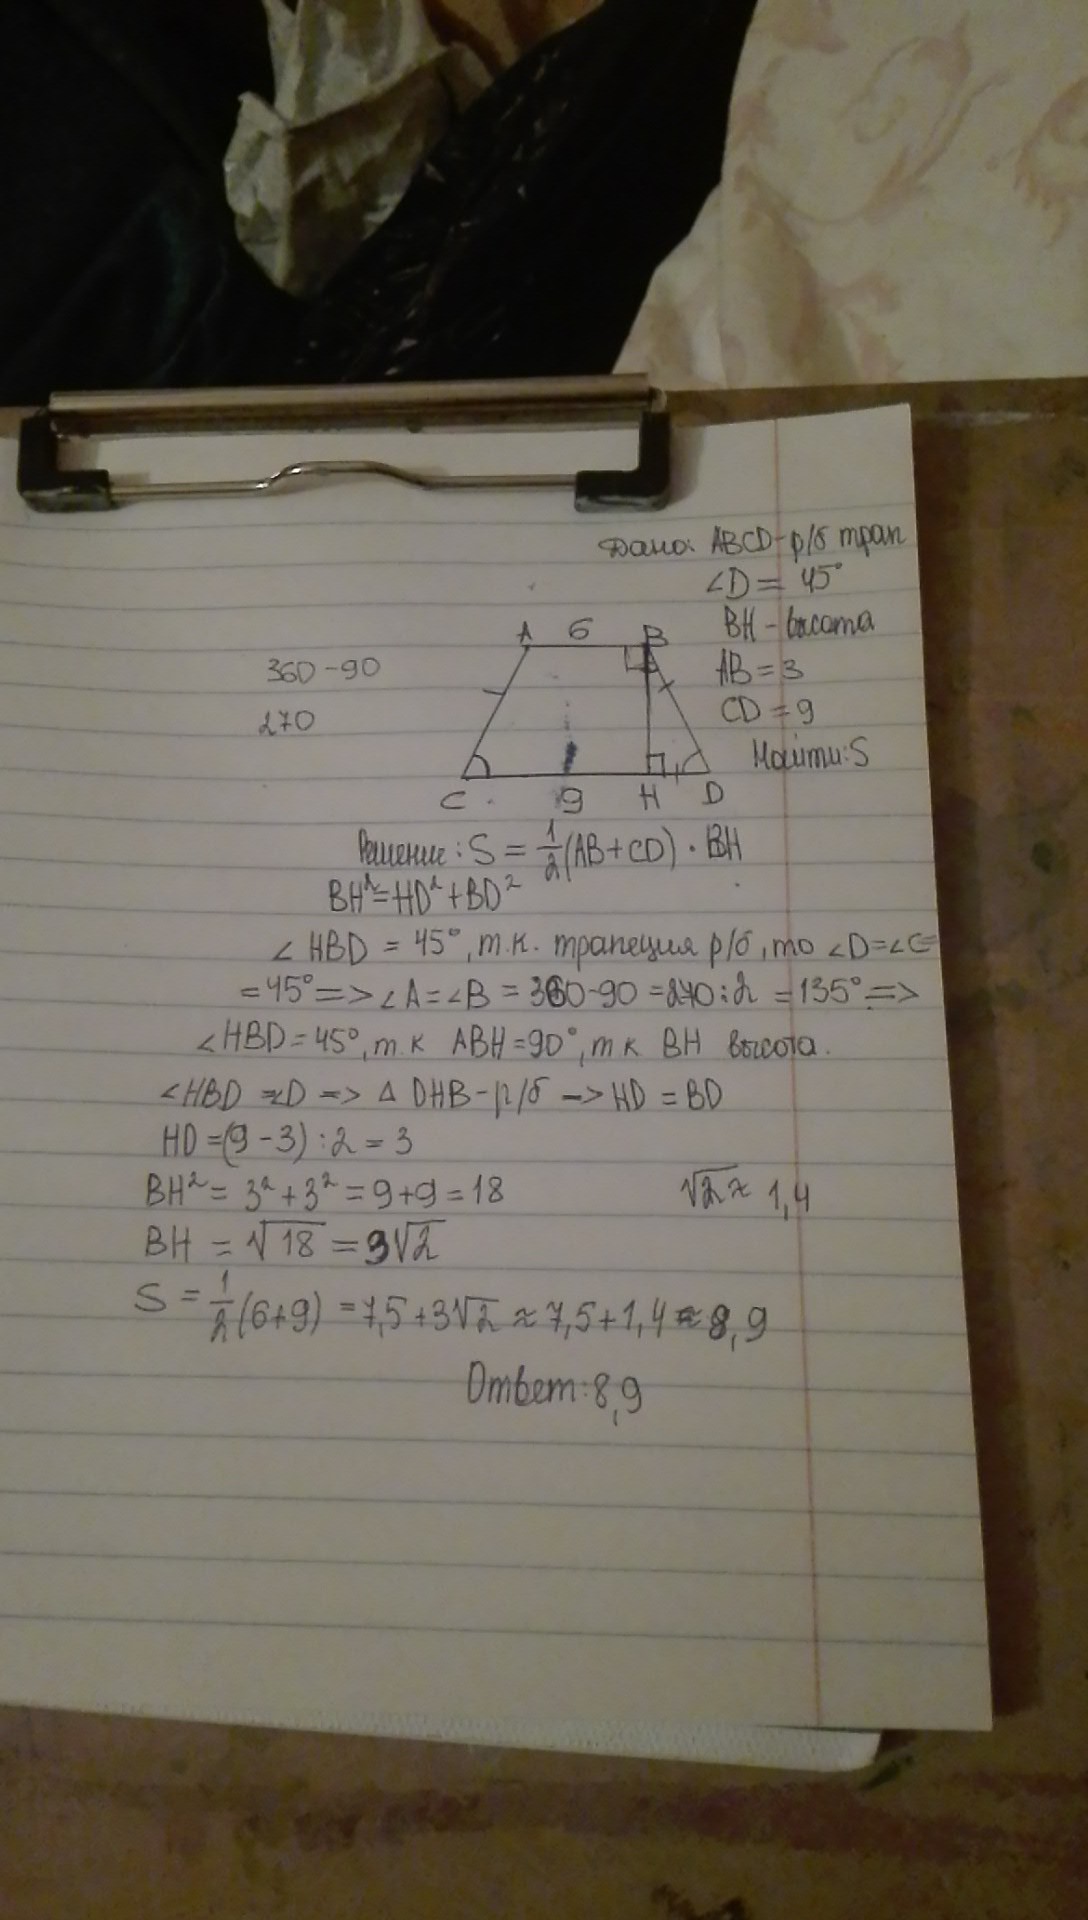 Дано: ABCD - р/б трап
∠D = 45°
BH - высота
AB = 3
CD = 9
Найти: S
A 6 B
360 - 90
270
C 9 H D
Решение: S = 1/2 (AB + CD) · BH
BH² = HD² + BD²
∠HBD = 45°, т.к. трапеция р/б, то ∠D = ∠C =
= 45° => ∠A = ∠B = 360 - 90 = 270 : 2 = 135° =>
∠HBD = 45°, т.к ABH = 90°, т к BH высота.
∠HBD = ∠D => Δ DHB - р/б -> HD = BD
HD = (9 - 3) : 2 = 3
BH² = 3² + 3² = 9 + 9 = 18
√2 ≈ 1,4
BH = √18 = 3√2
S = 1/2 (6 + 9) = 7,5 + 3√2 ≈ 7,5 + 1,4 ≈ 8,9
Ответ: 8,9